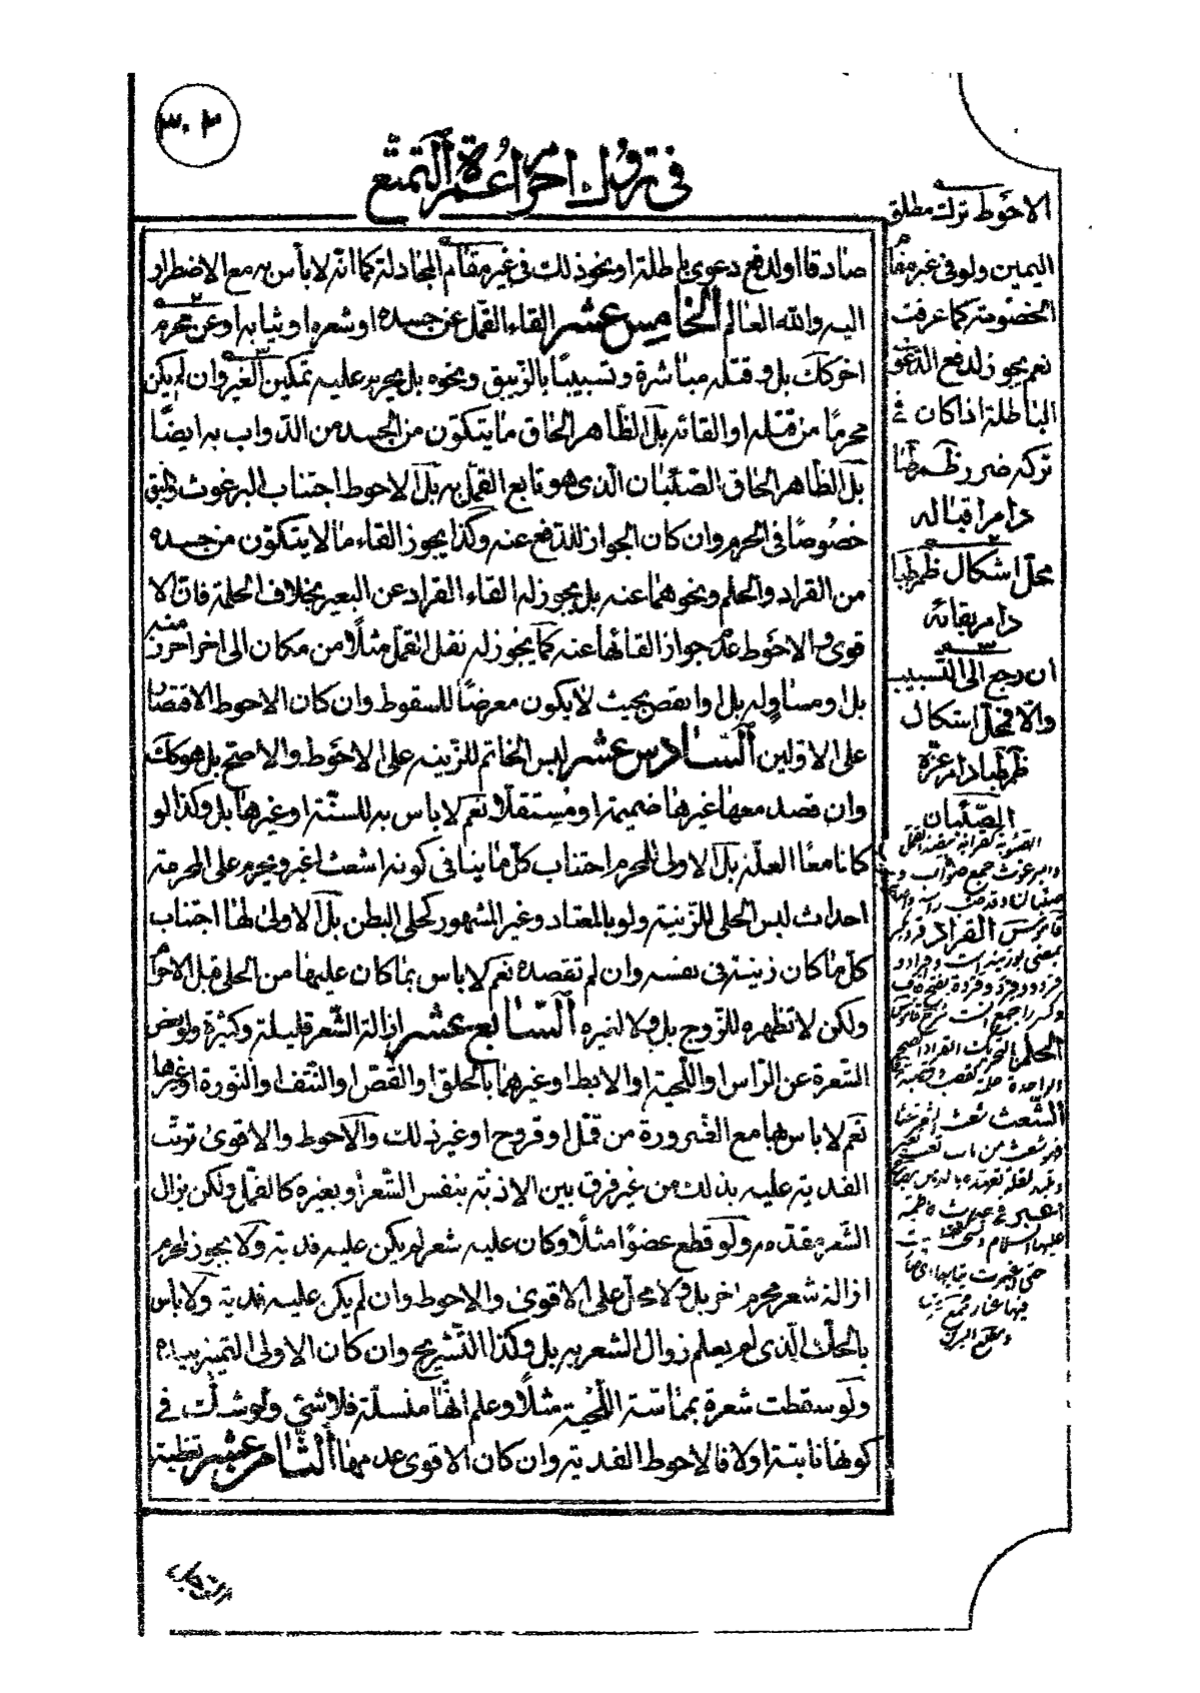 ٣٠٣
في تروك احرام عمرة التمتع
صادقا او لدفع دعوى باطلة او نحو ذلك في غير مقام المجادلة كما انه لا بأس به مع الاضطرار
اليه والله العالم الخامس عشر القاء القمل عن جسده او شعره او ثيابه او عن محرم
اخر كك بل وقتله مباشرة وتسبيبًا بالزيبق ونحوه بل يحرم عليه تمكين الغير وان لم يكن
محرمًا من قتله او القائه بل الظاهر الحاق ما يتكون من الجسد من الدواب به ايضًا
بل الظاهر الحاق الصئبان الذي هو تابع القمل به بل الاحوط اجتناب البرغوث والبق
خصوصًا في الحرم وان كان الجواز للدفع عنه وكذا يجوز القاء ما لا يتكون من جسده
من القراد والحلم ونحوهما عنه بل يجوز له القاء القراد عن البعير بخلاف الحلمة فان الا
قوى والاحوط عدم جواز القائها عنه كما يجوز له نقل القمل مثلًا من مكان الى اخر احرز منه
بل او مساو له بل او انقص بحيث لا يكون معرضًا للسقوط وان كان الاحوط الاقتصا
على الاولين السادس عشر لبس الخاتم للزينه على الاحوط والاصح بل هو كك
وان قصد معها غيرها ضميمة او مستقلًا نعم لا باس به للسنة او غيرها بل وكذا لو
كانا معًا العلة بل الاولى للمحرم اجتناب كل ما ينافي كونه اشعث اغبر ويحرم على المحرمة
احداث لبس الحلي للزينة ولو بالمعتاد وغير المشهور كحلي البطن بل الاولى لها اجتناب
كل ما كان زينة في نفسه وان لم تقصده نعم لا باس بما كان عليها من الحلي قبل الاحرا
ولكن لا تظهره للزوج بل ولا لغيره السابع عشر ازالة الشعر قليلة وكثيرة ولو بعض
الشعرة عن الراس او اللحية او الابط او غيرهما بالحلق او القص او النتف او النورة او غيرها
نعم لا باس بها مع الضرورة من قمل او قروح او غير ذلك والاحوط والاقوى ترتب
الفدية عليه بذلك من غير فرق بين الاذية بنفس الشعر او بغيره كالقمل ولكن يزال
الشعر مقدمه ولو قطع عضوًا مثلًا وكان عليه شعر لم يكن عليه فدية ولا يجوز لمحرم
ازالة شعر محرم اخر بل ولا محل على الاقوى والاحوط وان لم يكن عليه فدية ولا باس
بالحك الذي لم يعلم زوال الشعر به بل وكذا التسريح وان كان الاولى التمييز بيده
ولو سقطت شعرة بمماسة اللحية مثلًا وعلم انها منسلة فلا شئ ولو شك في
كونها نابتة او لا فالاحوط الفدية وان كان الاقوى عدمها الثامن عشر تغطية
الاحوط ترك مطلق
اليمين ولو في غير مقام
الخصومة كما عرفت
نعم يجوز لدفع الدعوى
الباطلة اذا كان في
تركه ضرر ظم طبا
دام اقباله
٢
محل اشكال ظم طبا
دام بقائه
٣
ان رجع الى التسبيب
والا فمحل اشكال
ظم طبا دام عزه
الصئبان
وبرغوث جمع صؤاب
قاموس القراد
الحلم بالتحريك القراد
الواحدة حلمة
الشعث
من باب تعب
اغبر في حديث فاطمة
عليها السلام
حتى اغبرت ثيابها اى صا
فيها غبار مجمع
ومطلع
الرجل